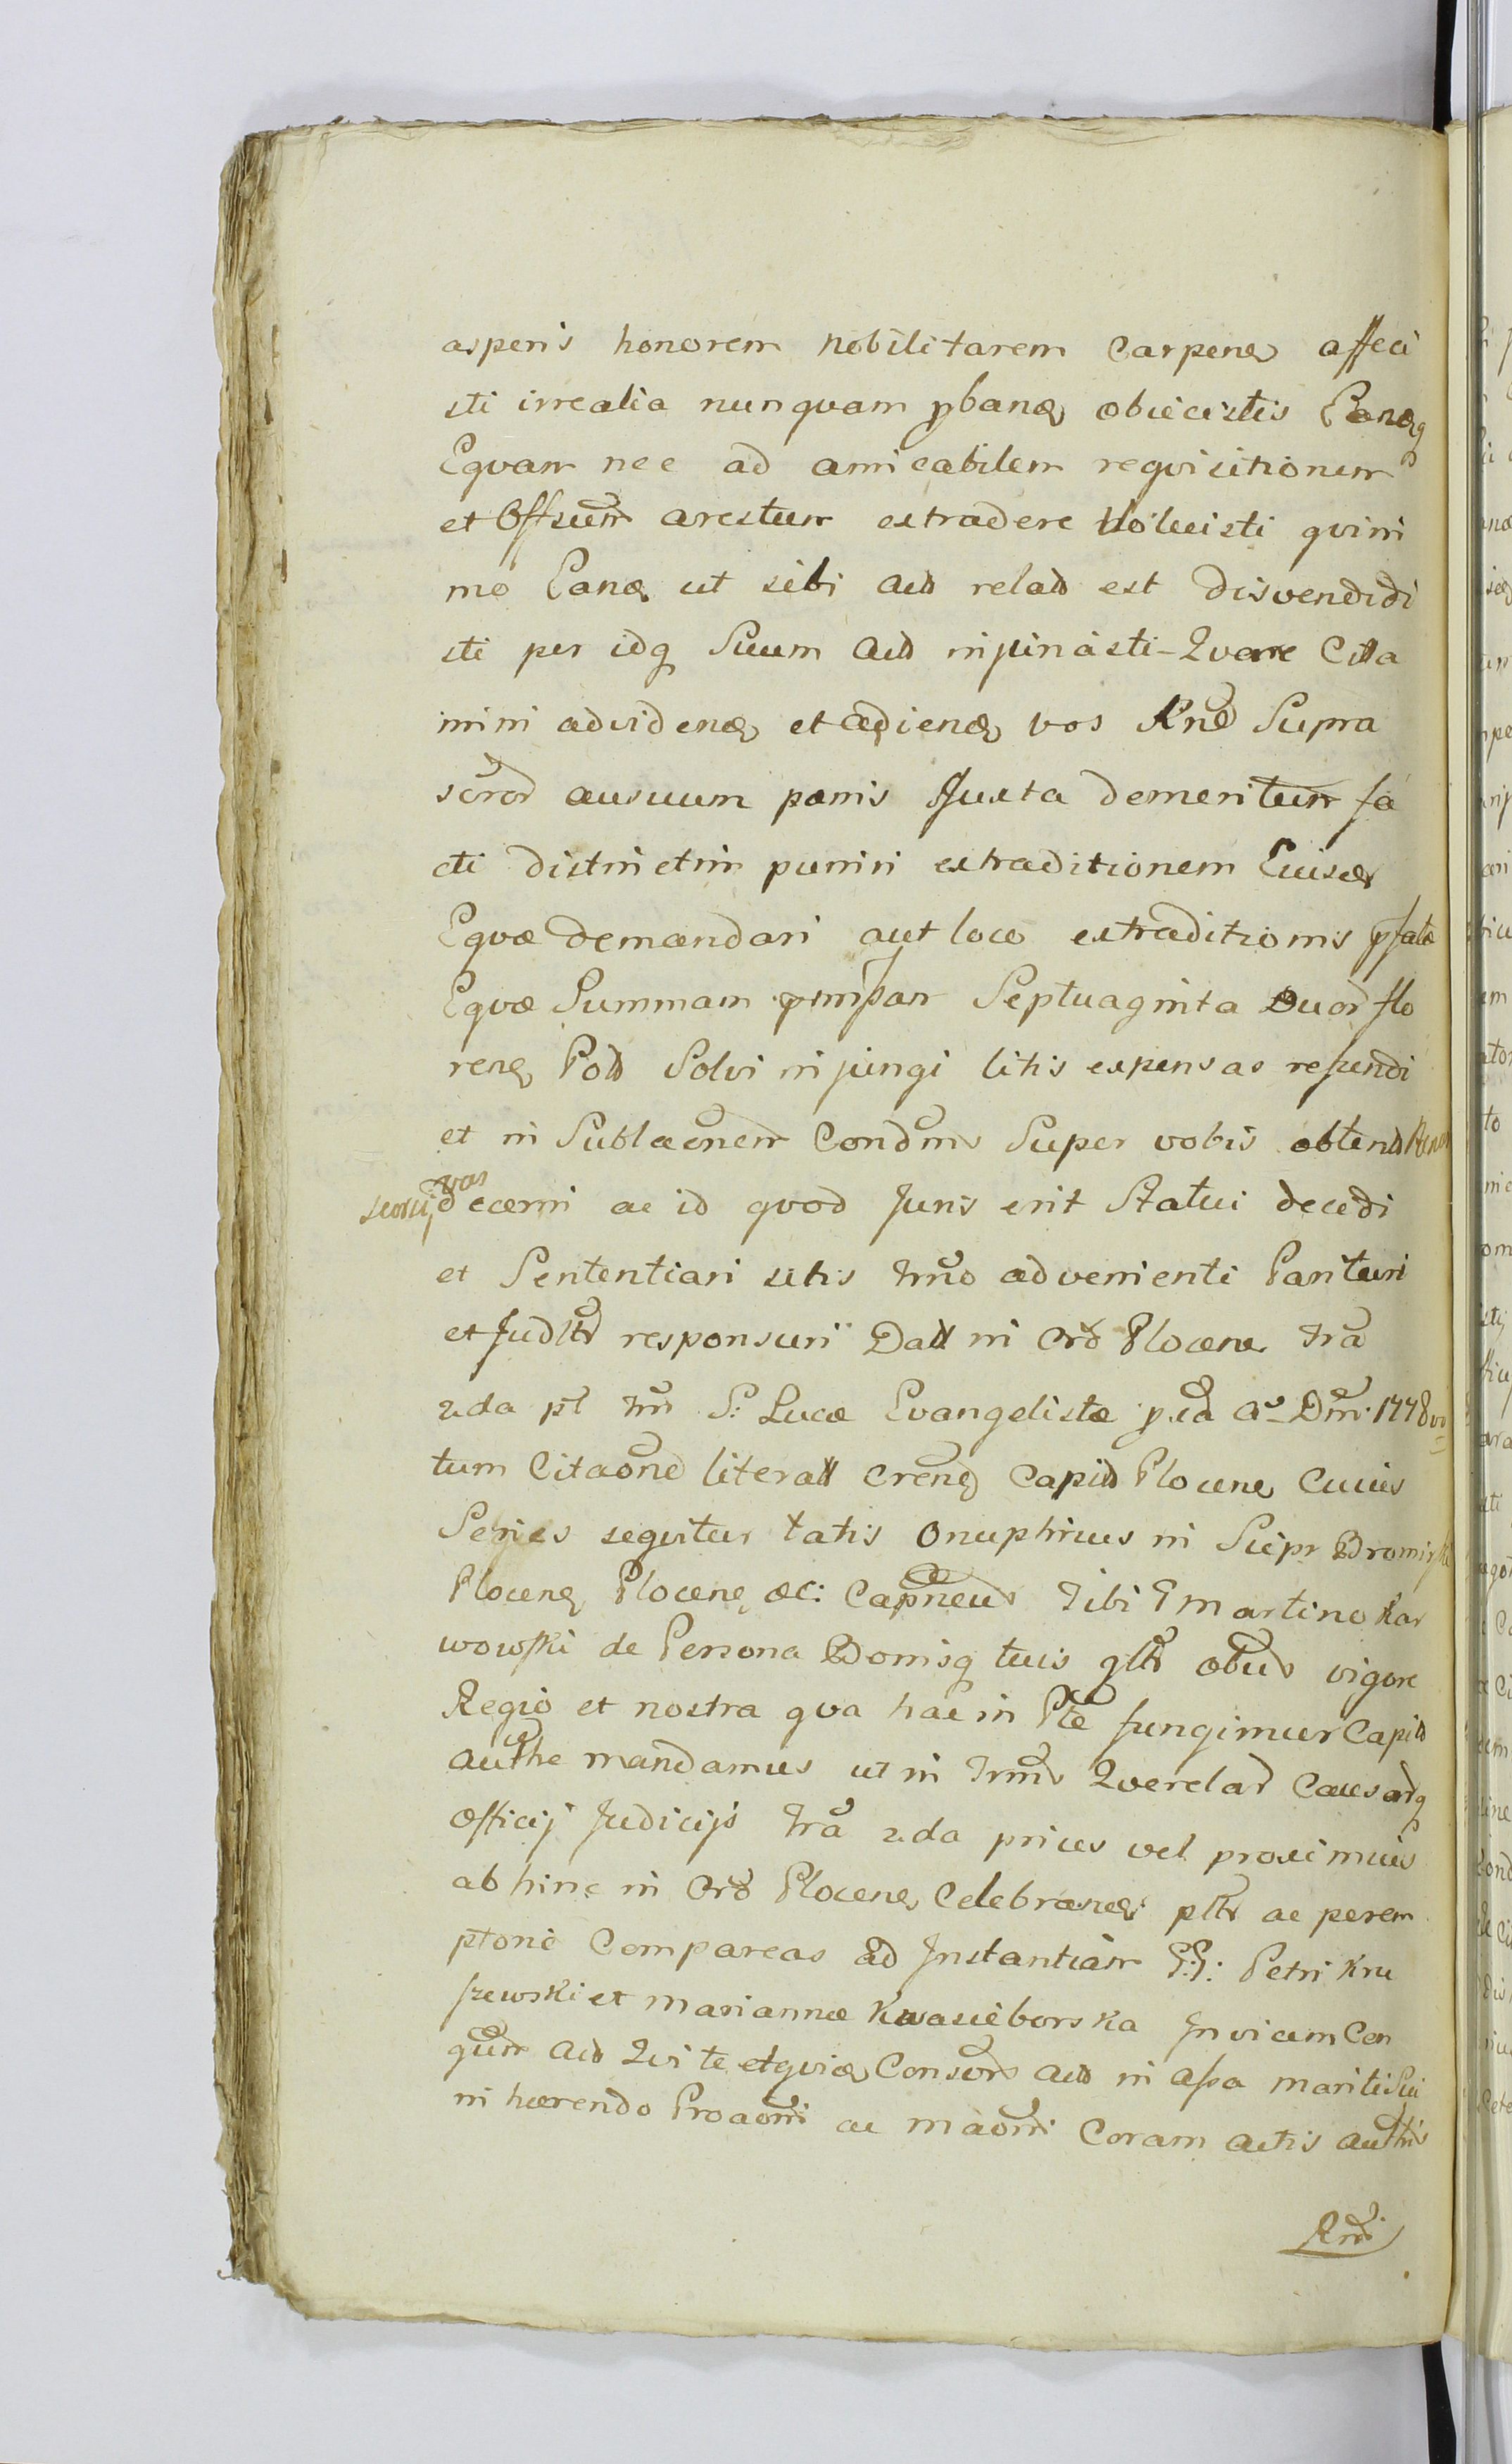 asperis honorem nobilitarem Carpend affeci
sti irrealia nunquam pband obiecistis Eandq
Equam nec ad amicabilem requisitionem
et Offsum arestum extradere Noluisti quini
mo Eand ut sibi Acto relato est disvendidi
sti per idq Suum Acto injuriasti - Quare Cita
mini ad vidend et audiend vos Rne Supra
scror ausuum pænis Juxta demeritum fa
cti districtim puniri extraditionem Eiusd
Equæ demandari aut loco extraditionis pfatæ
Equæ Summam Septuaginta Duor flo
rend Poll Solvi injungi litis expensas refundi
et in Sublaonem Condmn Super vobis obtend
decerni ac id quod Juris erit Statui decidi
et Sententiari sitis trno advenienti Parituri
et Judltr responsuri Datt in Crō Plocen fra
2da pt fm S: Lucæ Evangelistæ pxa Aō Dni 1778
tum Citaone literall Crend Capitt Plocen Cuius
Series sequitur talis Onuphrius in Siepr Bromirski
Plocen Plocen &c: Capneus Tibi G Martino Kar
wowski de Persona Bonisq tuis gltr obus vigore
Regio et nostra qua hac in Pte fungimur Capitt
Autthe mandamus ut in Trmis Querelar Causarq
Officij Judicijs fra 2da prius vel proximius
abhinc in Crō Plocen Celebrand pltr ac perem
ptorie Compareas ad Instantiam G:G: Petri Kru
szewski et Mariannæ Kwasieborska Invicem Con
gum Acto Qui te et quia Consors Acto in Assa mariti Sui
inhærendo Proaoni ac maoni Coram actis Autthis
Rndi